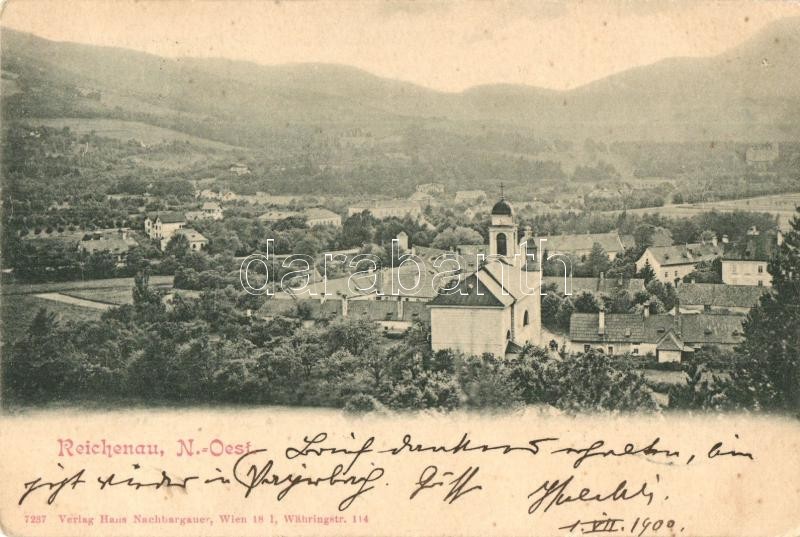 darabanth.com
Reichenau, N.-Oest.
Brief dankend erhalten, bin
jetzt wieder in Payerbach. Gruss
1. VII. 1900.
7237 Verlag Hans Nachbargauer, Wien 18/1, Währingstr. 114